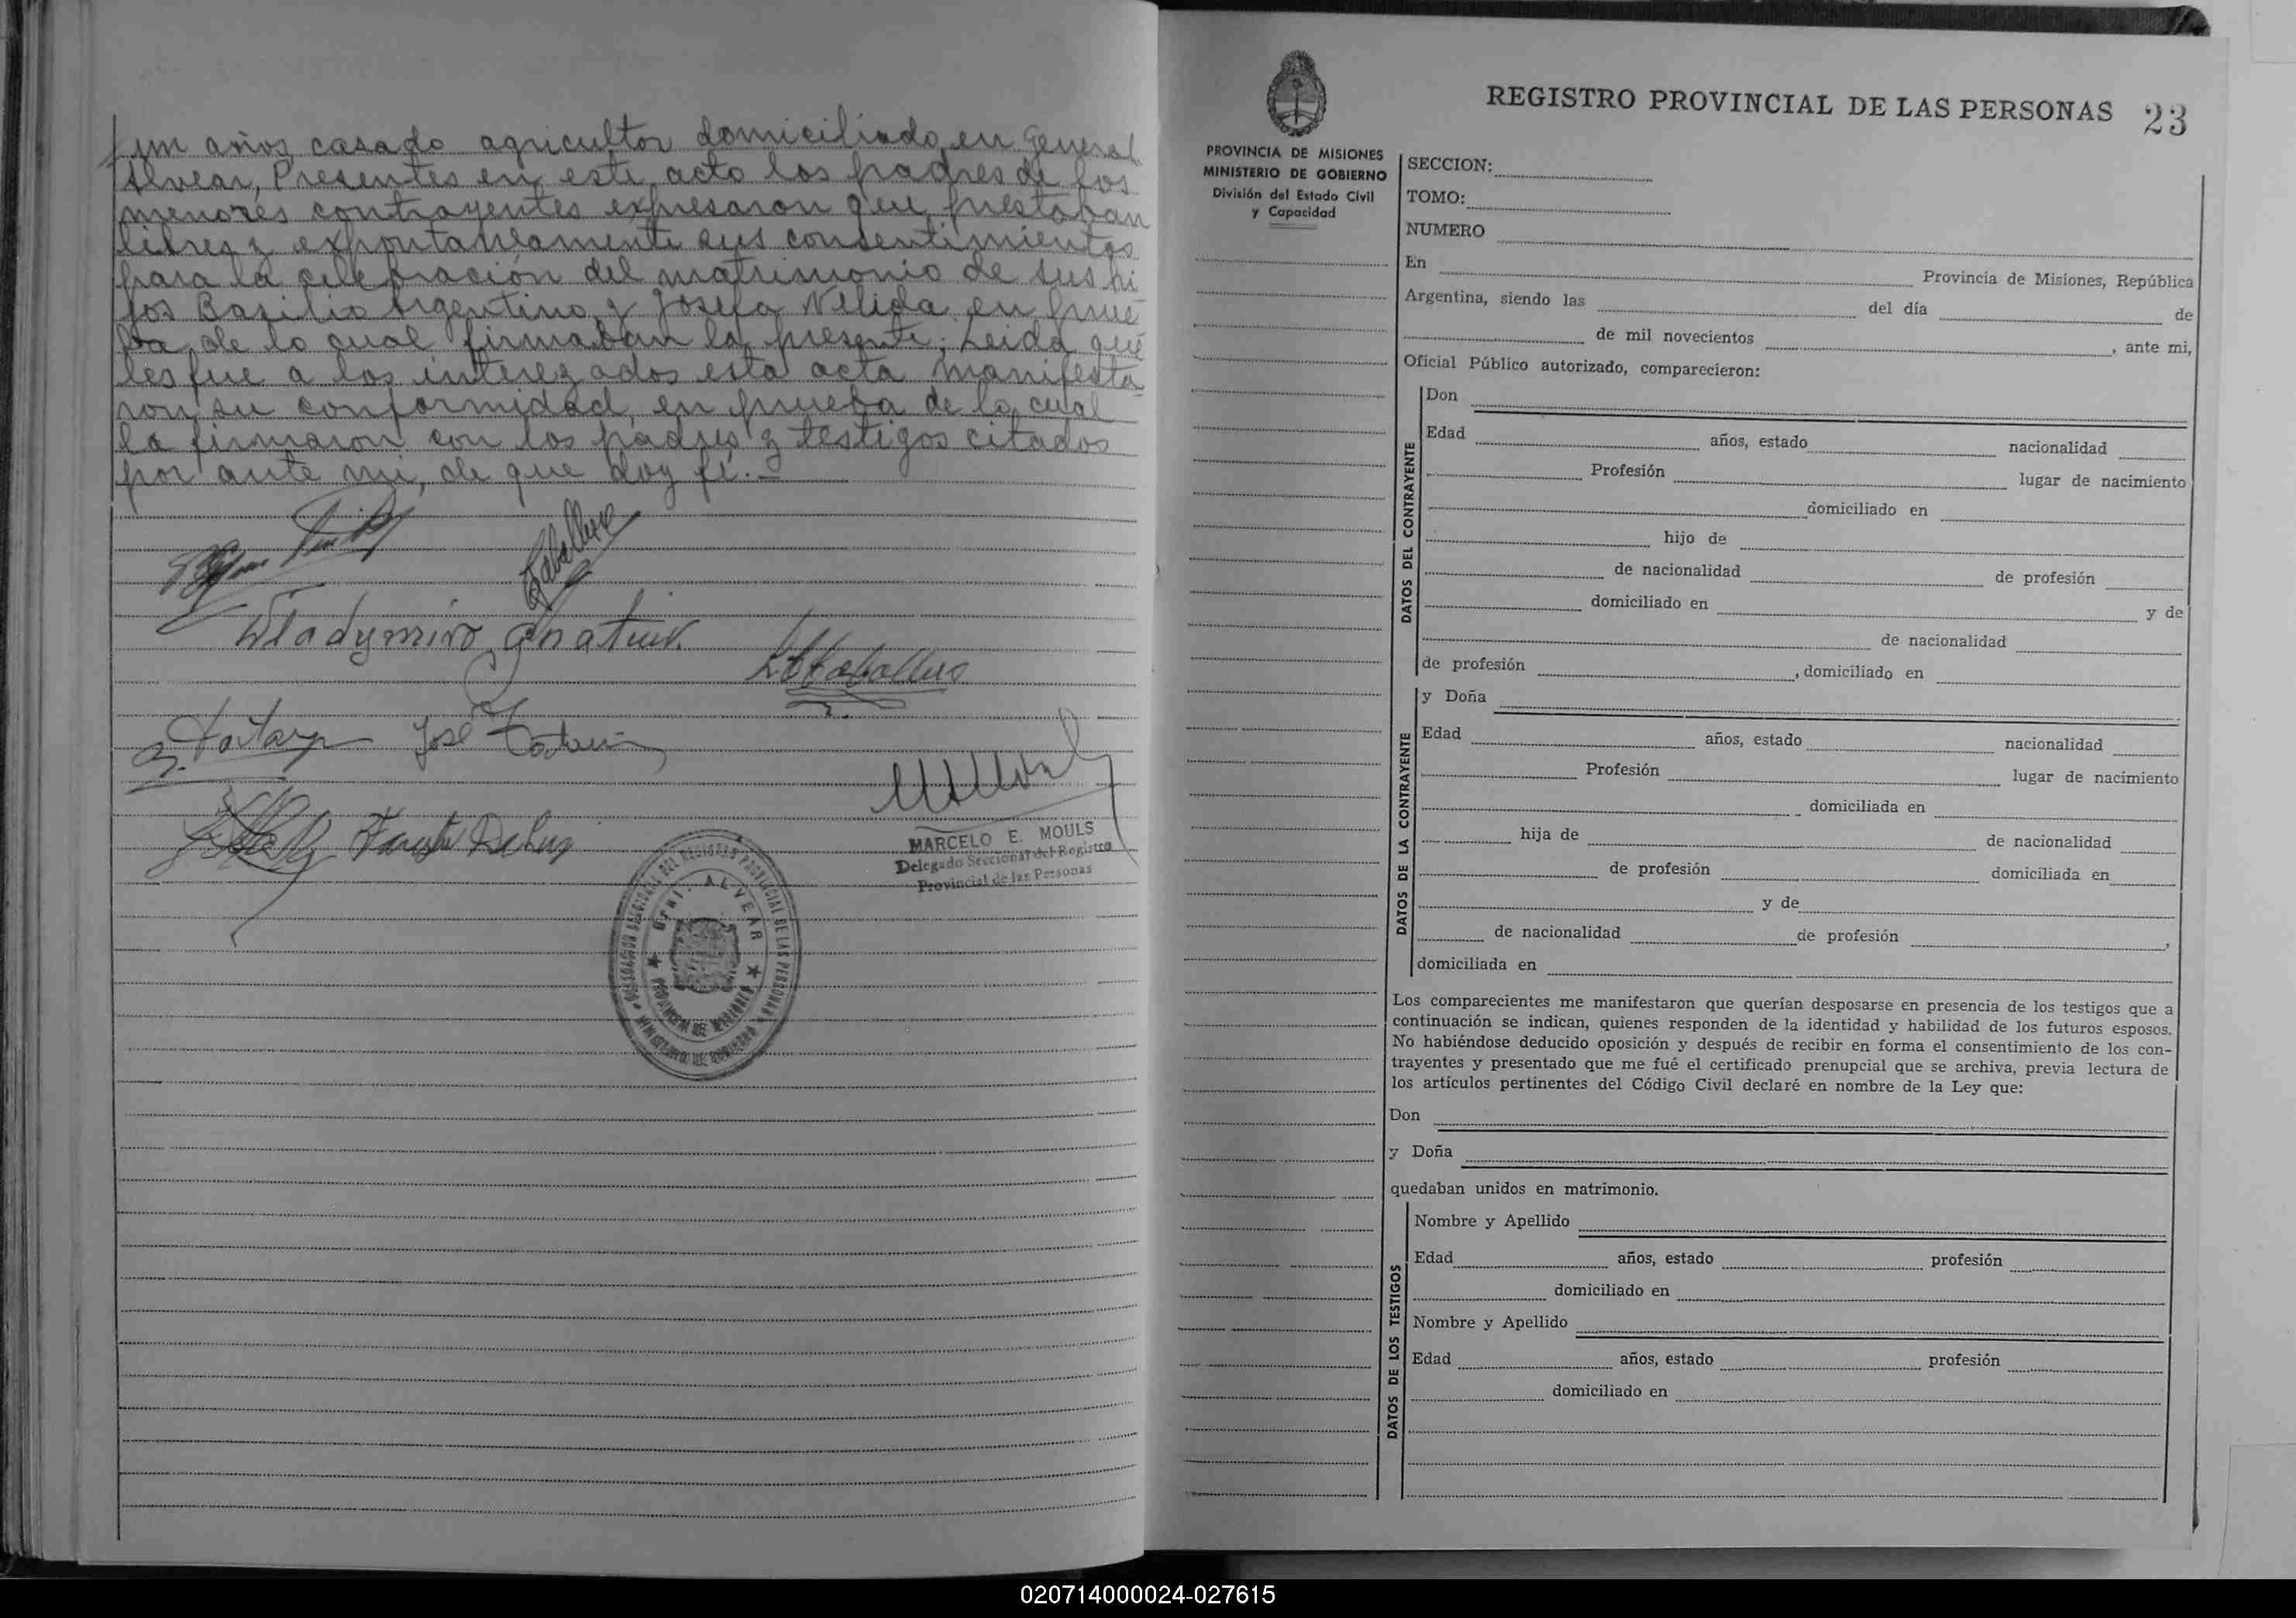 y un años casado agricultor domiciliado en General
Alvear, Presentes en este acto los padres de los
menores contrayentes expresaron que prestaban
libres y expontaneamente sus consentimientos
para la celebración del matrimonio de sus hi
jos Basilio Argentino y Josefa Nélida en prue
ba de lo cual firmaban la presente; Leida que
les fue a los interezados esta acta manifesta
ron su conformidad en prueba de lo cual
la firmaron con los padres y testigos citados
por ante mi, de que doy fé.-
Caballero
Wladymiro
Caballero
José
MARCELO E. MOULS
Delegado Seccional del Registro
Provincial de las Personas
Gral. ALVEAR
PROVINCIA DE MISIONES
MINISTERIO DE GOBIERNO
REGISTRO PROVINCIAL DE LAS PERSONAS 23
PROVINCIA DE MISIONES
MINISTERIO DE GOBIERNO
División del Estado Civil
y Capacidad
SECCION:
TOMO:
NUMERO
En Provincia de Misiones, República
Argentina, siendo las del día de
de mil novecientos , ante mi,
Oficial Público autorizado, comparecieron:
DATOS DEL CONTRAYENTE
Don
Edad años, estado nacionalidad
Profesión lugar de nacimiento
domiciliado en
hijo de
de nacionalidad de profesión
domiciliado en y de
de nacionalidad
de profesión , domiciliado en
DATOS DE LA CONTRAYENTE
y Doña
Edad años, estado nacionalidad
Profesión lugar de nacimiento
domiciliada en
hija de de nacionalidad
de profesión domiciliada en
y de
de nacionalidad de profesión ,
domiciliada en
Los comparecientes me manifestaron que querían desposarse en presencia de los testigos que a
continuación se indican, quienes responden de la identidad y habilidad de los futuros esposos.
No habiéndose deducido oposición y después de recibir en forma el consentimiento de los con-
trayentes y presentado que me fué el certificado prenupcial que se archiva, previa lectura de
los artículos pertinentes del Código Civil declaré en nombre de la Ley que:
Don
y Doña
quedaban unidos en matrimonio.
DATOS DE LOS TESTIGOS
Nombre y Apellido
Edad años, estado profesión
domiciliado en
Nombre y Apellido
Edad años, estado profesión
domiciliado en
020714000024-027615